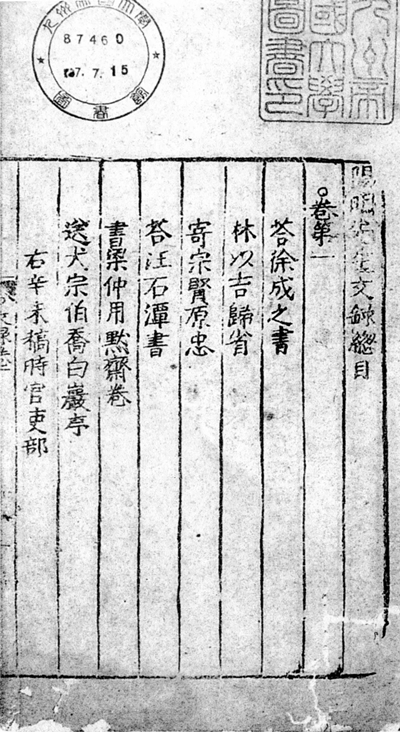 九州帝國大學圖書印
九州帝國大學
87460
'37.7.15
圖書館
陽明先生文錄總目
○卷第一
荅徐成之書
林以吉歸省
寄宗賢原忠
荅汪石潭書
書梁仲用默齋卷
送犬宗伯喬白巖亭
右辛未稿時官吏部